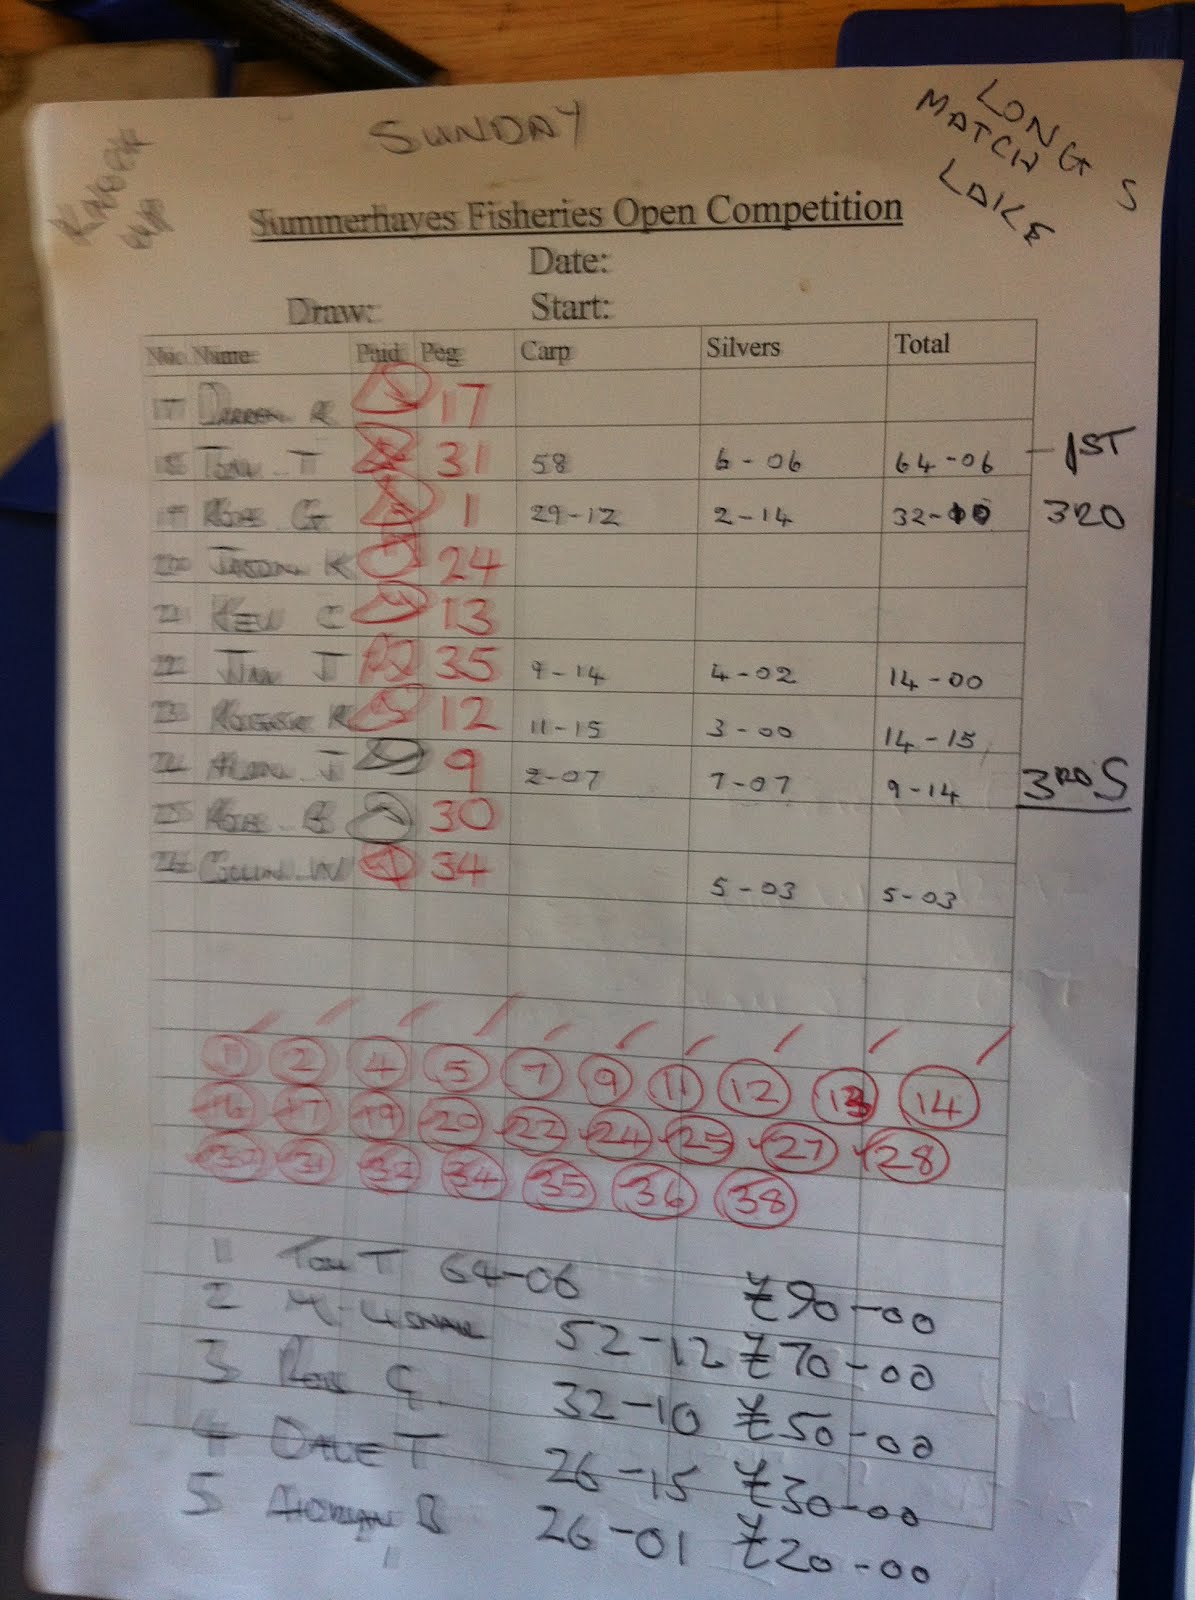 SUNDAY
LONG S
MATCH
LAKE
Summerhayes Fisheries Open Competition
Date:
Draw: Start:
No. Name Paid Peg Carp Silvers Total
17 Darren R 17
18 Tom T 31 58 6-06 64-06 - 1ST
19 G 1 29-12 2-14 32-10 3RD
20 Jason K 24
21 Kev C 13
22 J 35 9-14 4-02 14-00
23 R 12 11-15 3-00 14-15
24 J 9 2-07 7-07 9-14 3RD S
25 B 30
26 W 34 5-03 5-03
1 2 4 5 7 9 11 12 13 14
16 17 19 20 22 24 25 27 28
30 31 32 34 35 36 38
1 Tom T 64-06 £90-00
2 52-12 £70-00
3 G 32-10 £50-00
4 Dale T 26-15 £30-00
5 B 26-01 £20-00